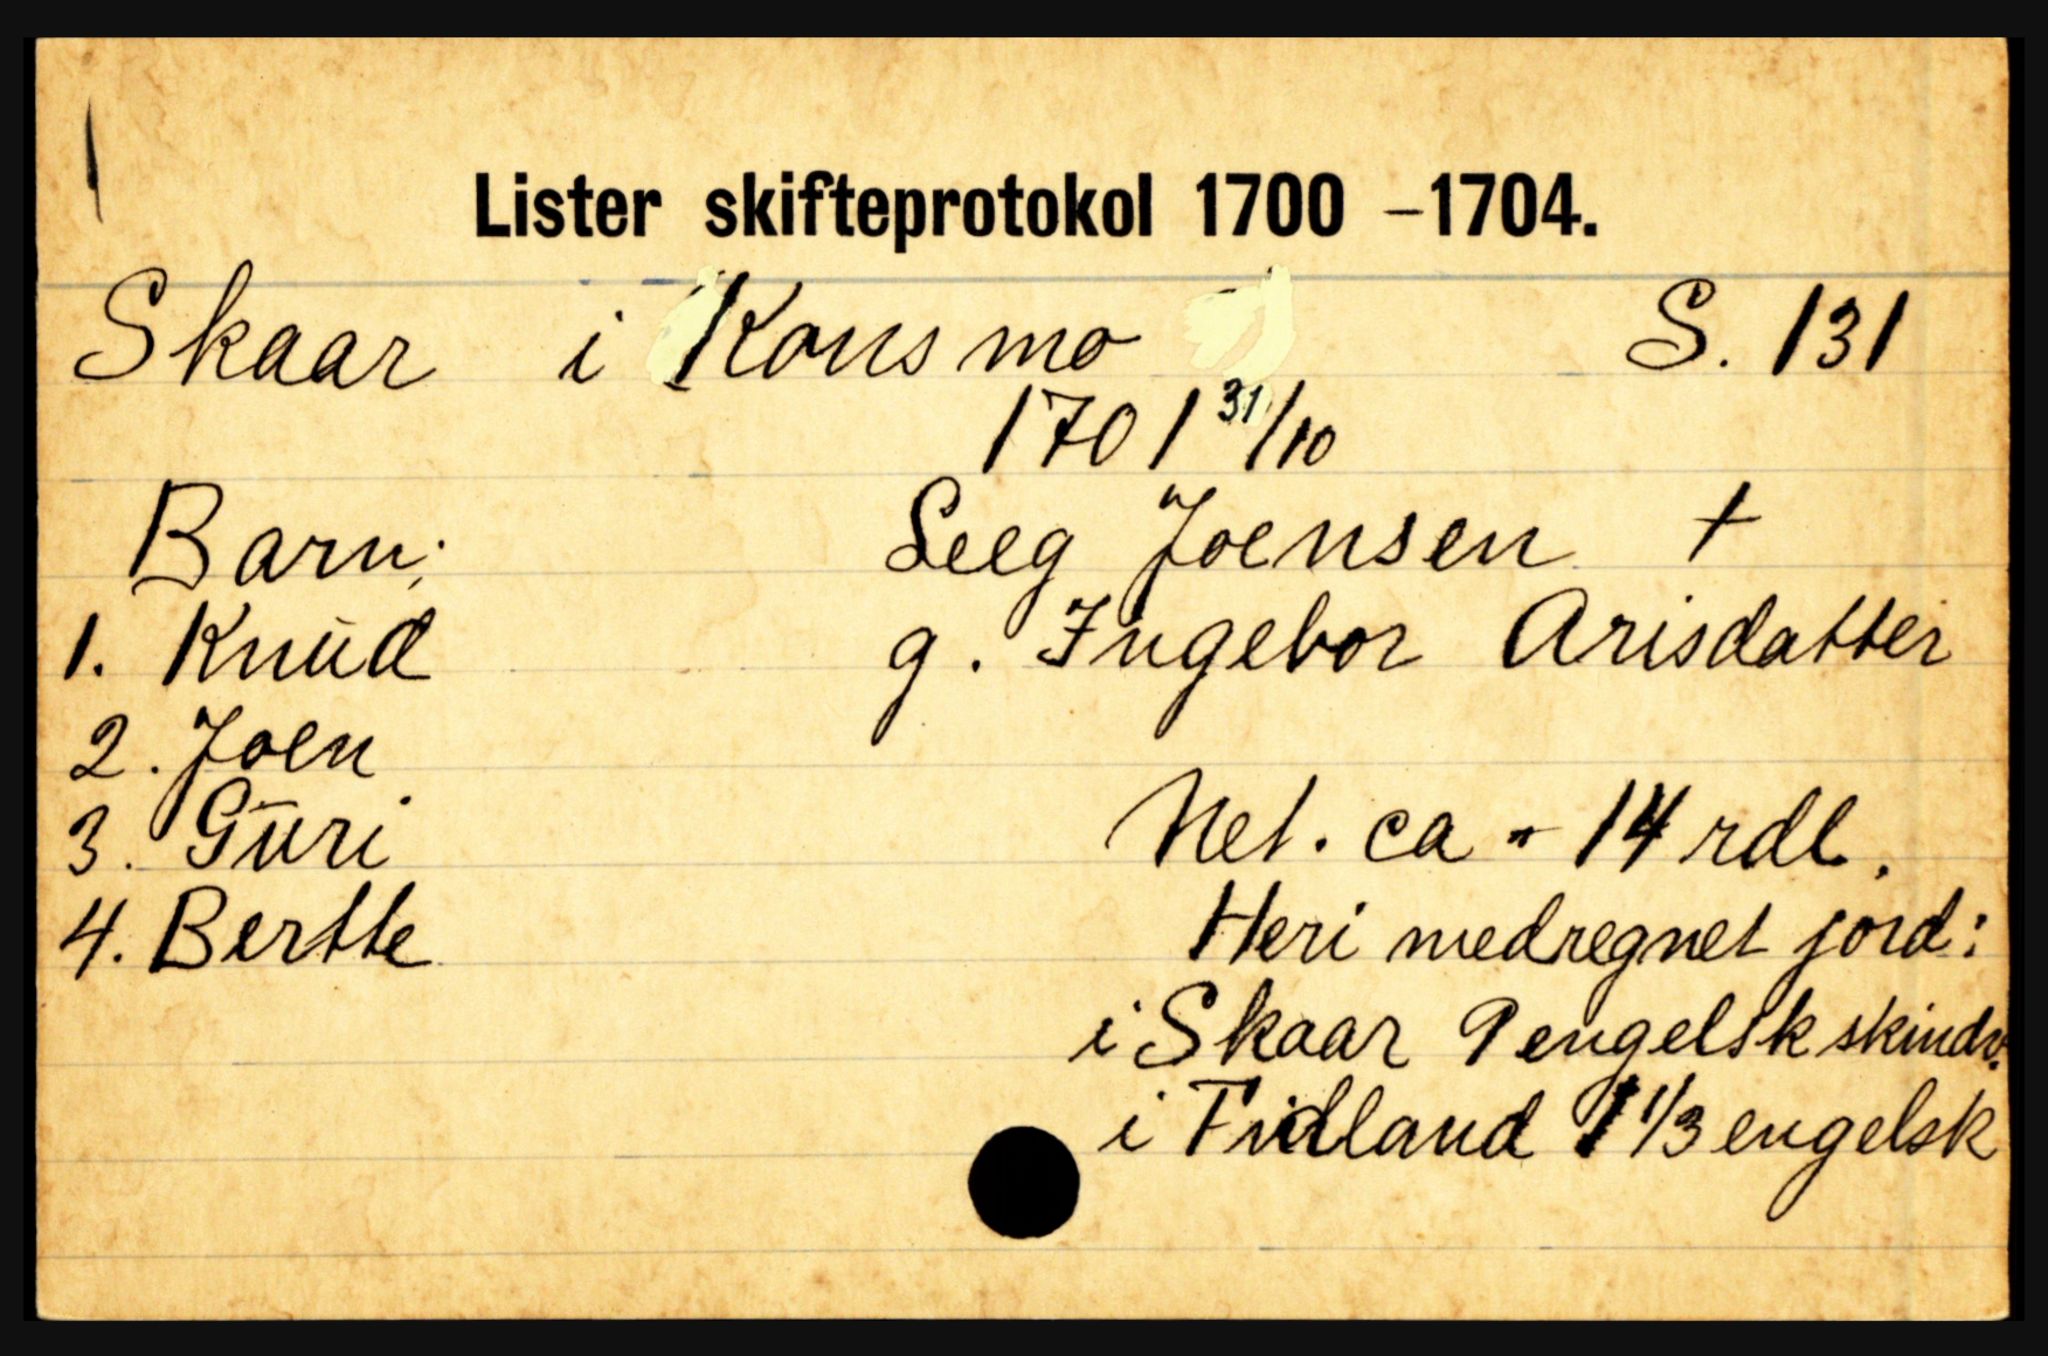 Lister skifteprotokol 1700 –1704.
Skaar i Konsmo S. 131
1701 31/10
Barn: Seeg Joensen †
1. Knud g. Ingebor Arisdatter
2. Joen
3. Guri Net. ca - 14 rdl.
4. Bertte Heri medregnet jord:
i Skaar 9 engelsk skindv.
i Fidland 1 1/3 engelsk